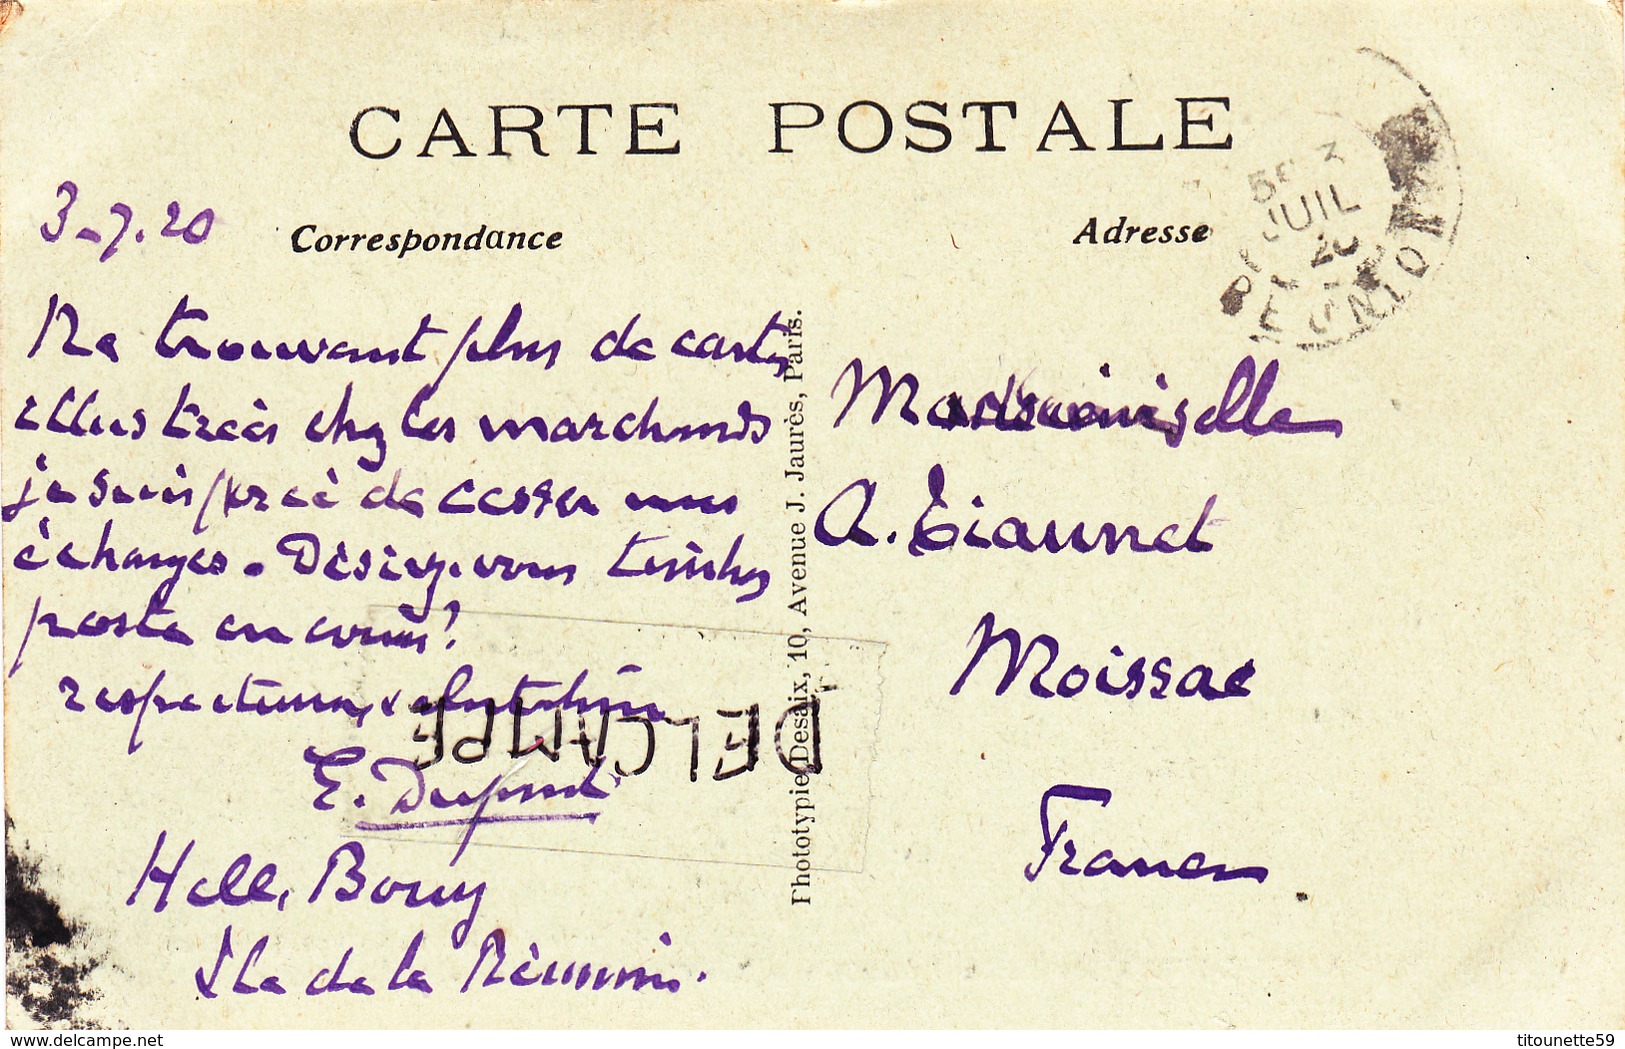 CARTE POSTALE
3-7.20
Correspondance
Adresse
5 3
JUIL
20
REUNION
Ne trouvant plus de cartes
illustrées chez les marchands
je suis forcé de cesser mes
échanges. Désirez-vous timbres
poste en
respectueuses
E. Dupont
Hell Bourg
Ile de la Réunion.
Phototypie Desaix, 10, Avenue J. Jaurès, Paris.
Mademoiselle
A. Tiaunet
Moissac
France
DELCAMPE
www.delcampe.net
titounette59